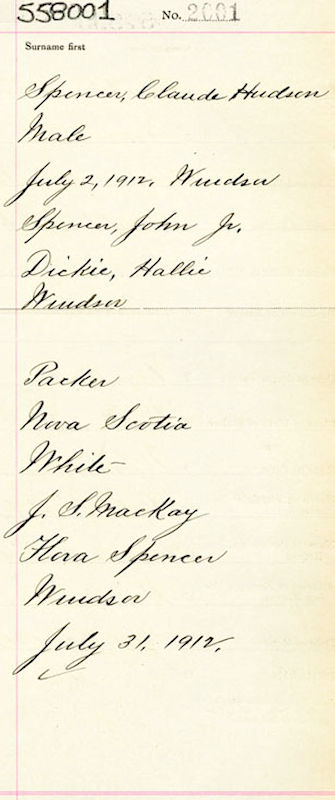 558001 No. 2001
Surname first
Spencer, Claude Hudson
Male
July 2, 1912. Windsor
Spencer, John Jr.
Dickie, Hallie
Windsor
Packer
Nova Scotia
White
J. S. MacKay
Flora Spencer
Windsor
July 31, 1912.